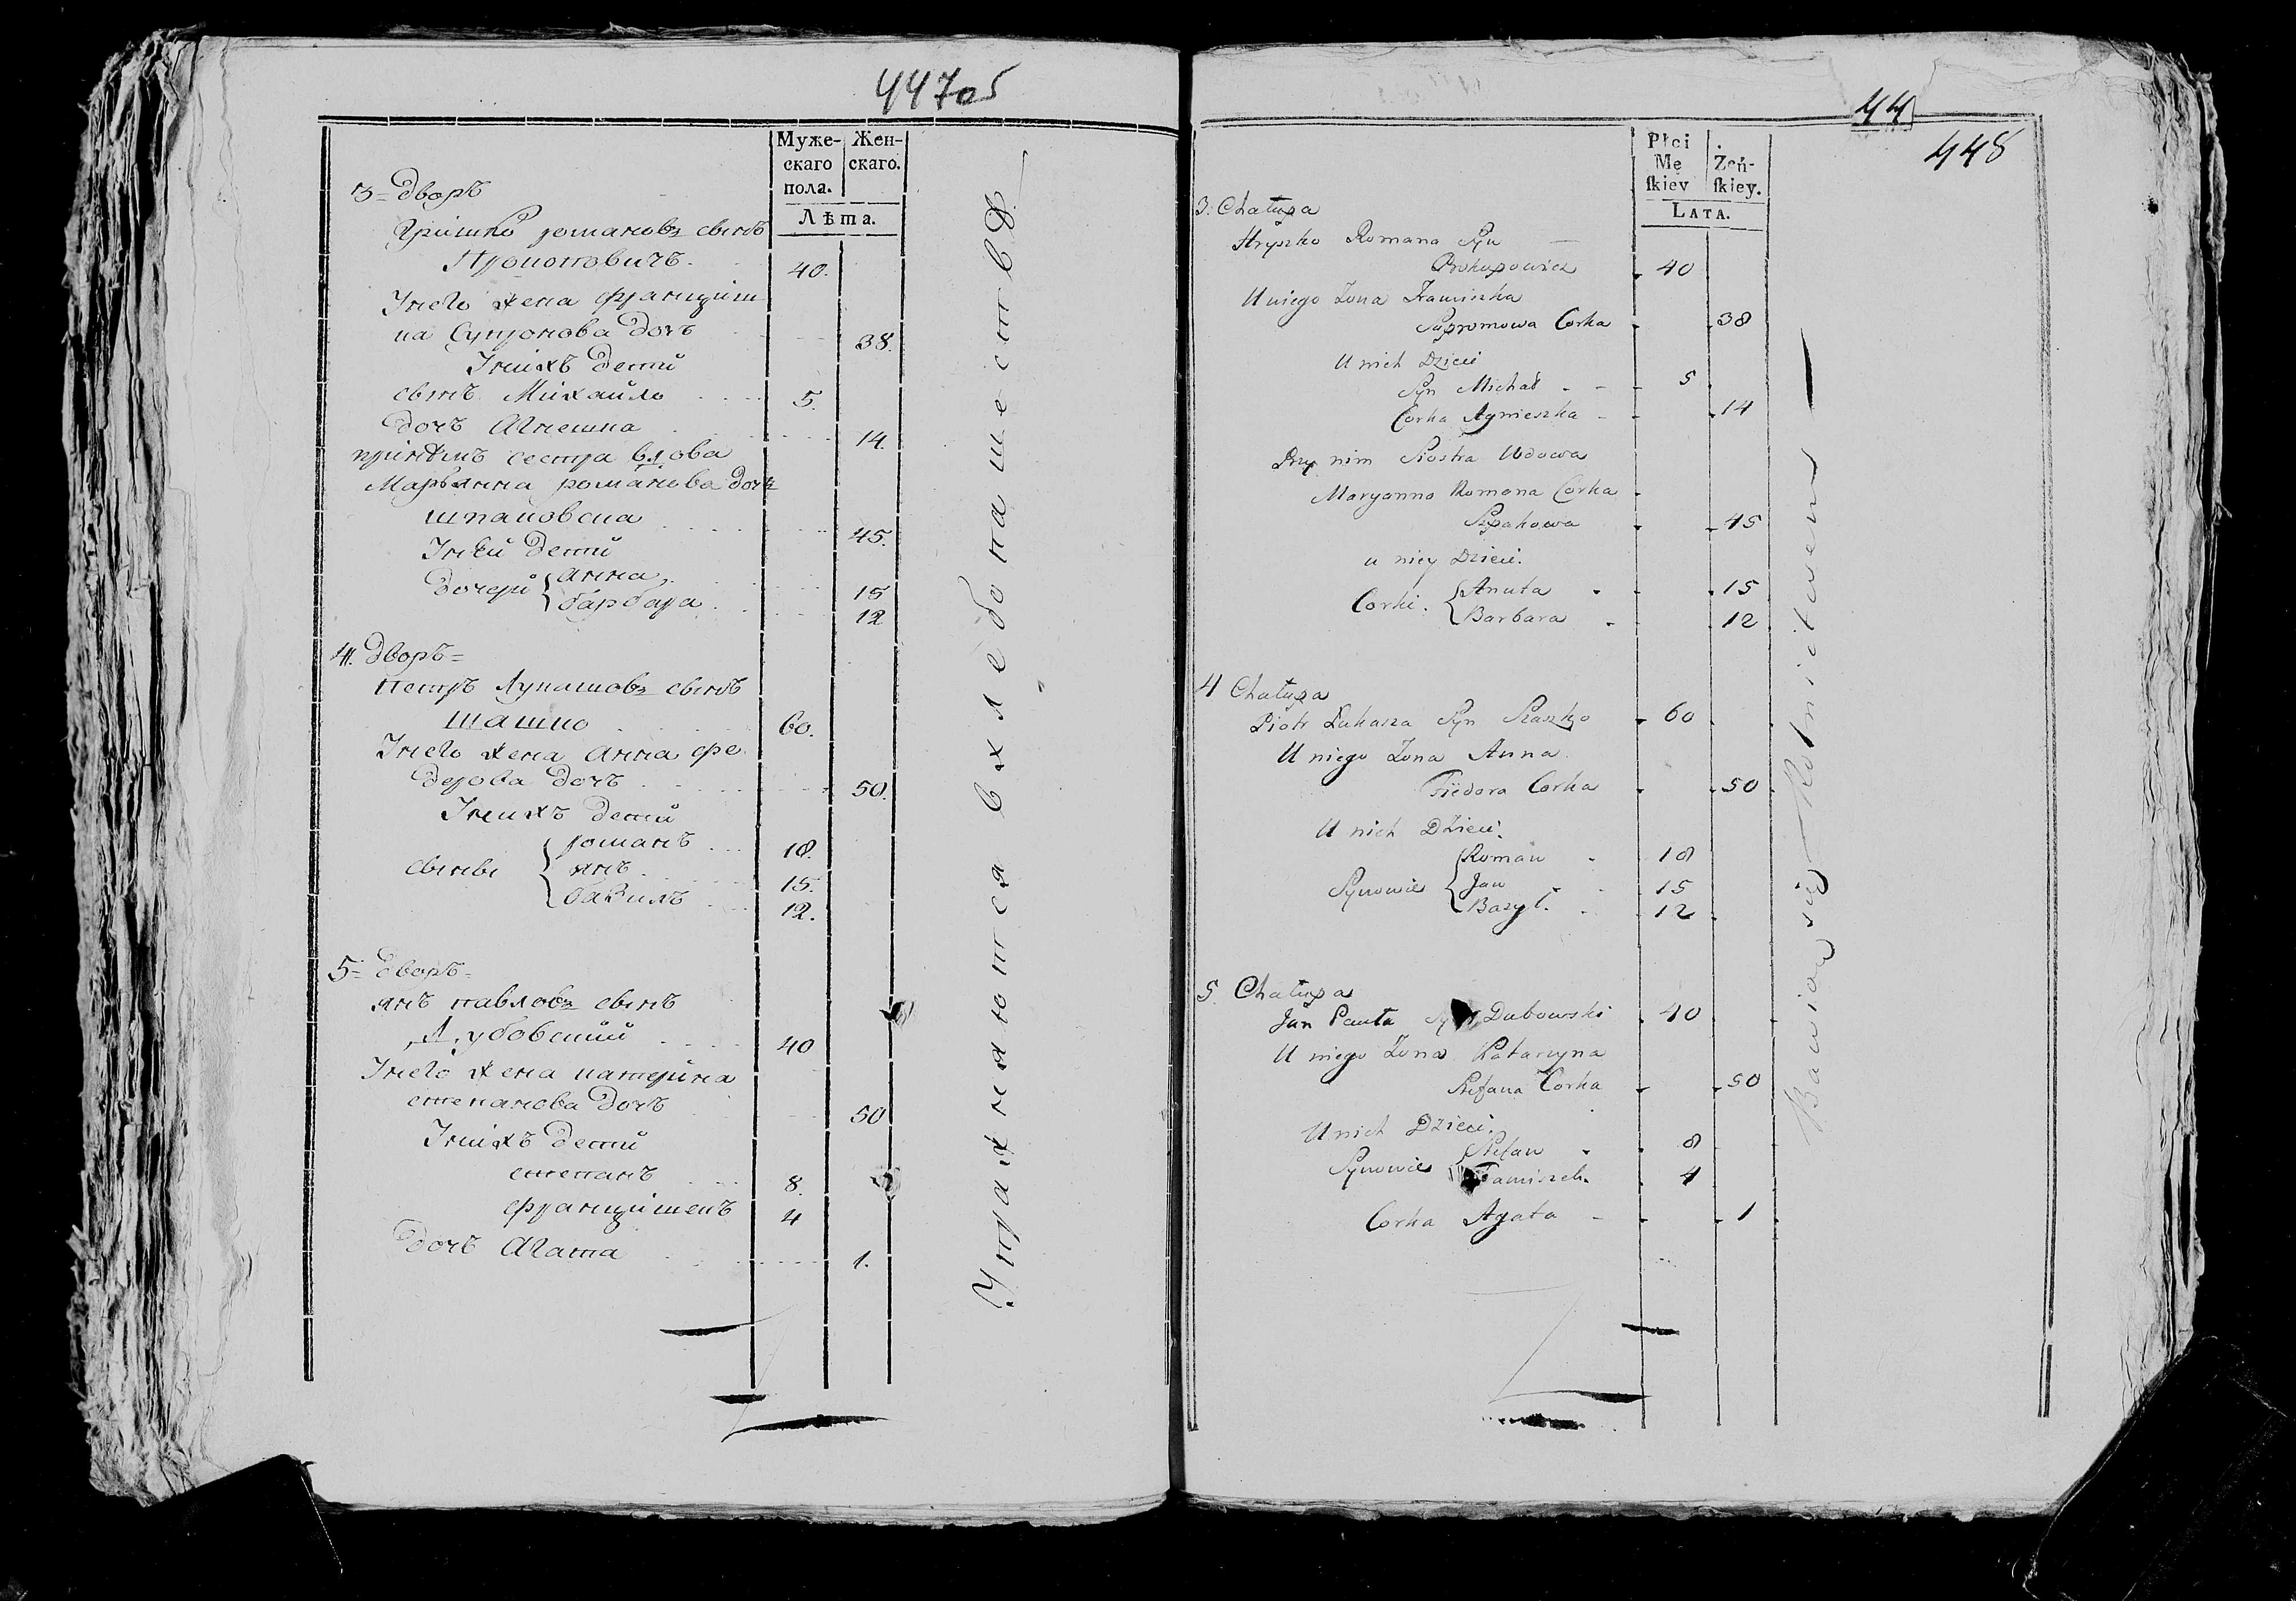 447об
Муже-
скаго
пола.
Жен-
скаго.
Лѣта.
3 = Дворъ
Гришко романовъ сынъ
Прокоповичъ. 40.
Унего жена францѣш
ка Супронова Дочъ 38.
Унихъ Дети
сынъ Михайло 5.
Дочъ Агнешка 14.
принемъ сестра вдова
Марьянна романова Дочъ
шпаковска 45.
Уней Дети
Дочери { Анна, 15
барбара. 12
4. Дворъ =
петръ Лукашовъ сынъ
шашко 60.
Унего жена Анна фе
дерова Дочъ 50.
Унихъ Дети
сыны { романъ 18.
янъ 15.
базиль 12.
5 = Дворъ =
янъ павловъ сынъ
Дубовский 40
Унего жена катерина
степанова Дочъ 50
Унихъ Дети
степанъ 8.
францишекъ 4
Дочъ Агата 1.
Упражняются в хлебопашестве
44
448
Płci
Mę
ſkiey
Żeń-
ſkiey.
LATA.
3. Chałupa
Hryszko Romana Syn
Prokopowicz 40
U niego Zona Franiszka
Supronowa Corka 38
U nich Dzieci
Syn Michał 5
Corka Agnieszka 14
Przy nim Siostra Wdowa
Maryanna Romana Corka
Szpakowa 45
u niey Dzieci.
Corki. { Anuta 15
Barbara 12
4 Chałupa
Piotr Łukasza Syn Szaszko 60
U niego Zona Anna
Fiedora Corka 50
U nich Dzieci.
Synowie { Roman 18
Jan 15
Bazyl. 12
5. Chałupa
Jan Pawła Syn Dubowski 40
U niego Zona Katarzyna
Stefana Corka 50
U nich Dzieci.
Synowie { Stefan 8
Franiszek. 4
Corka Agata 1
Bawion się Rolnictwem